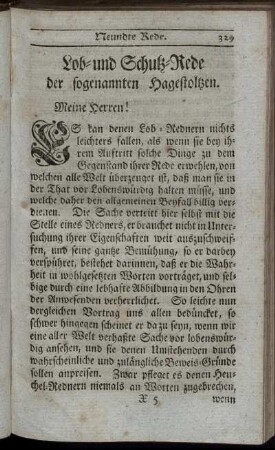 Neundte Rede. 329
Lob- und Schutz-Rede
der sogenannten Hagestoltzen.
Meine Herren!
ES kan denen Lob-Rednern nichts
leichters fallen, als wenn sie bey ih-
rem Auftritt solche Dinge zu dem
Gegenstand ihrer Rede erwehlen, von
welchen alle Welt überzeuget ist, daß man sie in
der That vor Lobenswürdig halten müsse, und
welche daher den allgemeinen Beyfall billig ver-
dienen. Die Sache vertrit hier selbst mit die
Stelle eines Redners, er brauchet nicht in Unter-
suchung ihrer Eigenschaften weit auszuschweif-
fen, und seine gantze Bemühung, so er darbey
verspühret, bestehet darinnen, daß er die Wahr-
heit in wohlgesetzten Worten vorträget, und sel-
bige durch eine lebhafte Abbildung in den Ohren
der Anwesenden verherrlichet. So leichte nun
dergleichen Vortrag uns allen bedüncket, so
schwer hingegen scheinet er da zu seyn, wenn wir
eine aller Welt verhaßte Sache vor lobenswür-
dig ansehen, und sie denen Umstehenden durch
wahrscheinliche und zulängliche Beweis-Gründe
sollen anpreisen. Zwar pfleget es denen Heu-
chel-Rednern niemals an Worten zugebrechen,
X 5 wenn